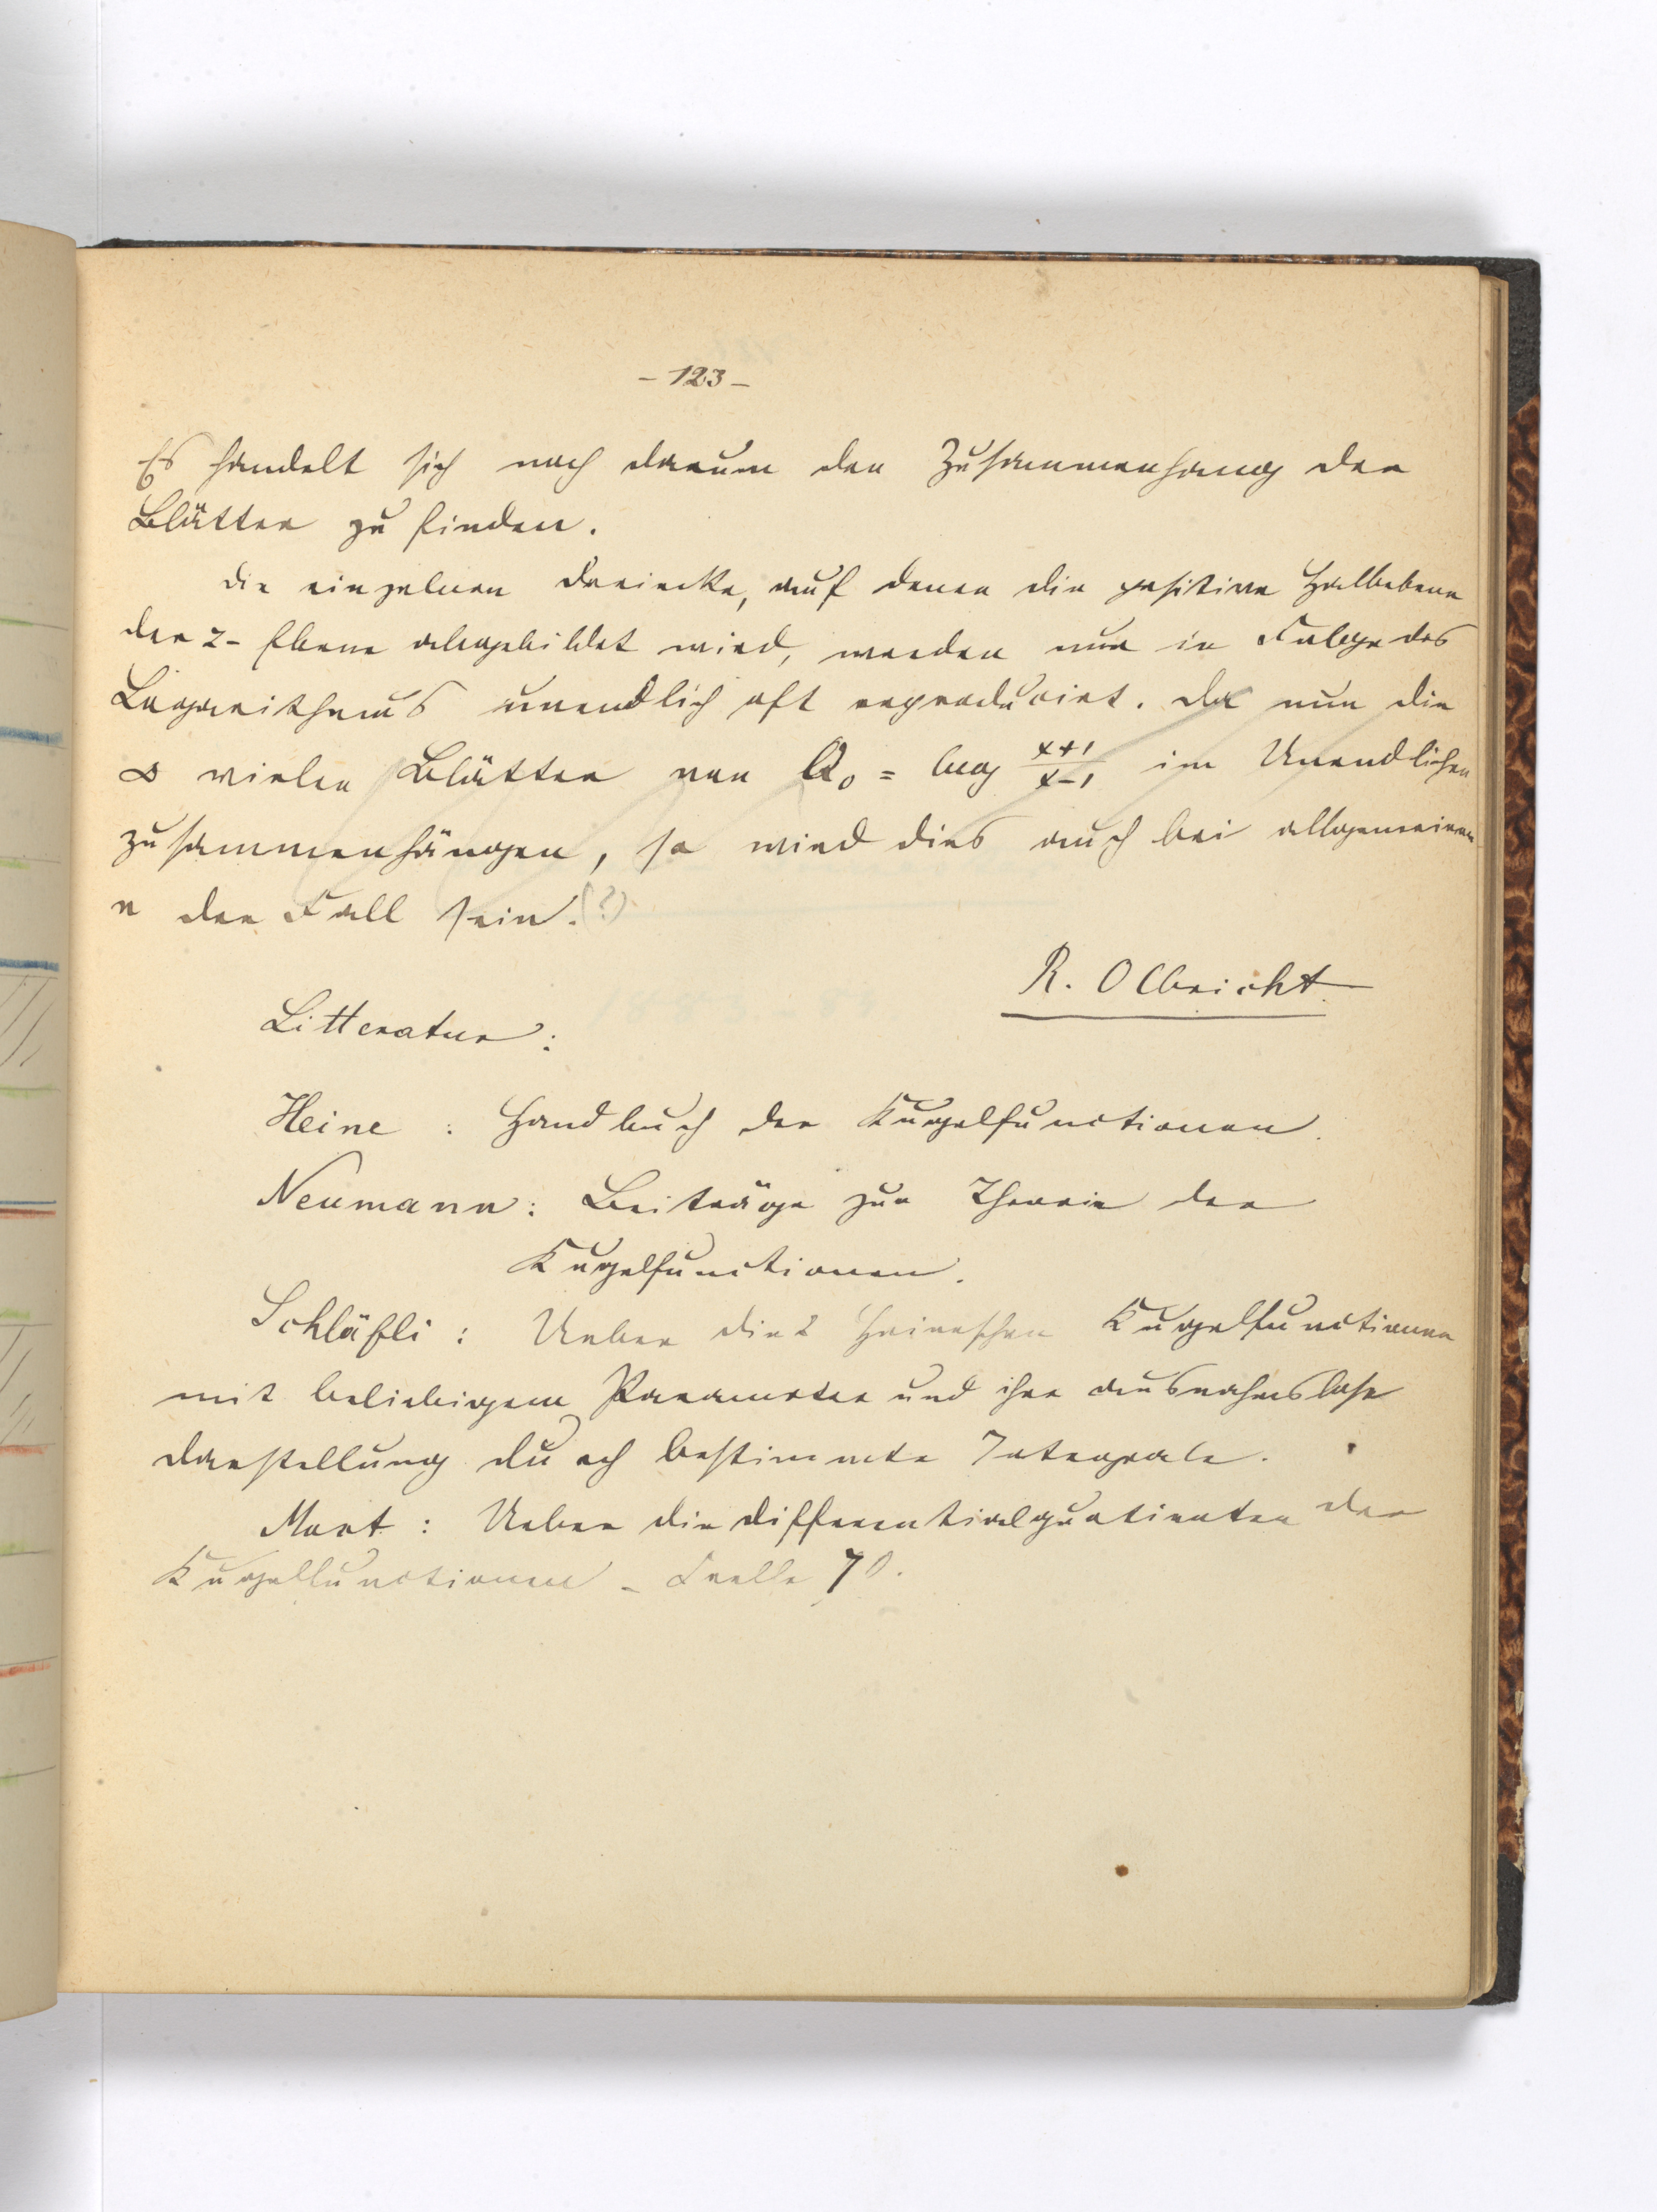 - 123 -
Es handelt sich noch darum den Zusammenhang der
Blätter zu finden.
Die einzelnen Dreiecke, auf denen die positive Halbebene
der z- Ebene abgebildet wird, werden nun in Folge des
Logarithmus unendlich oft reproducirt. Da nun die
∞ vielen Blätter von Q₀ = log (x+1)/(x-1) im Unendlichen
zusammenhängen, so wird dies auch bei allgemeinem
n der Fall sein. (?)
R. Olbricht
Litteratur:
Heine : Handbuch der Kugelfunctionen.
Neumann: Beiträge zur Theorie der
Kugelfunctionen.
Schläfli : Ueber die 2 Heineschen Kugelfunctionen
mit beliebigem Parameter und ihre ausnahmslose
Darstellung durch bestimmte Integrale.
Most : Ueber die Differentialquotienten der
Kugelfunctionen - Crelle 70.